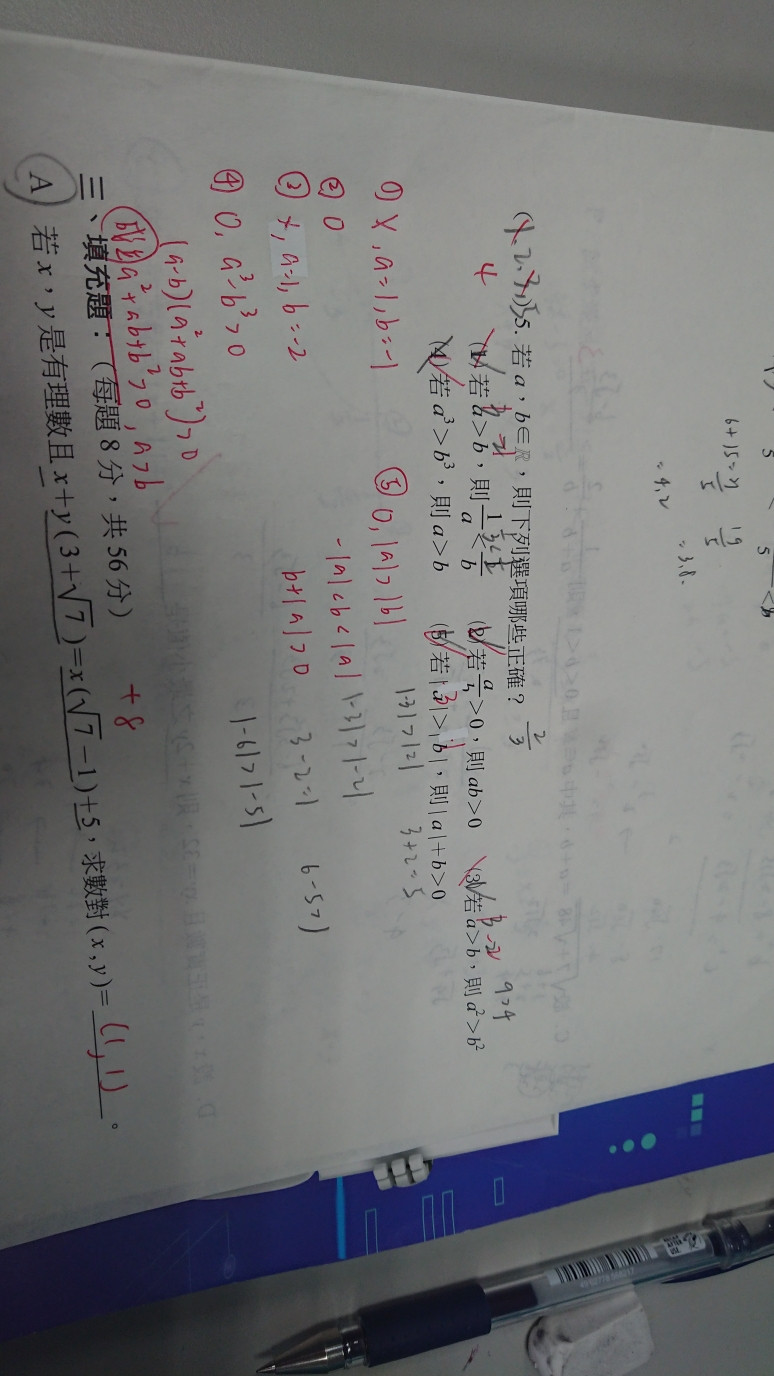 6+15=21
5
19
5
=4.2
=3.8
2
3
4
5. 若 a，b∈ℝ，則下列選項哪些正確？
(1) 若 a>b，則 1/a < 1/b (2) 若 a/b >0，則 ab>0 (3) 若 a>b，則 a²>b²
(4) 若 a³>b³，則 a>b (5) 若 |a|>|b|，則 |a|+b>0
9>4
① X, a=1, b=-1
② O
③ X, a=1, b=-2
④ O, a³-b³>0
(a-b)(a²+ab+b²)>0
a²+ab+b²>0, a>b
⑤ O, |a|>|b|
-|a|<b<|a|
b+|a|>0
|-3|>|2|
3+2=5
|-3|>|-2|
3-2=1
|-6|>|-5|
6-5=1
三、填充題：（每題 8 分，共 56 分）
+8
A 若 x，y 是有理數且 x+y(3+√7)=x(√7-1)+5，求數對 (x,y)= (1,1) 。